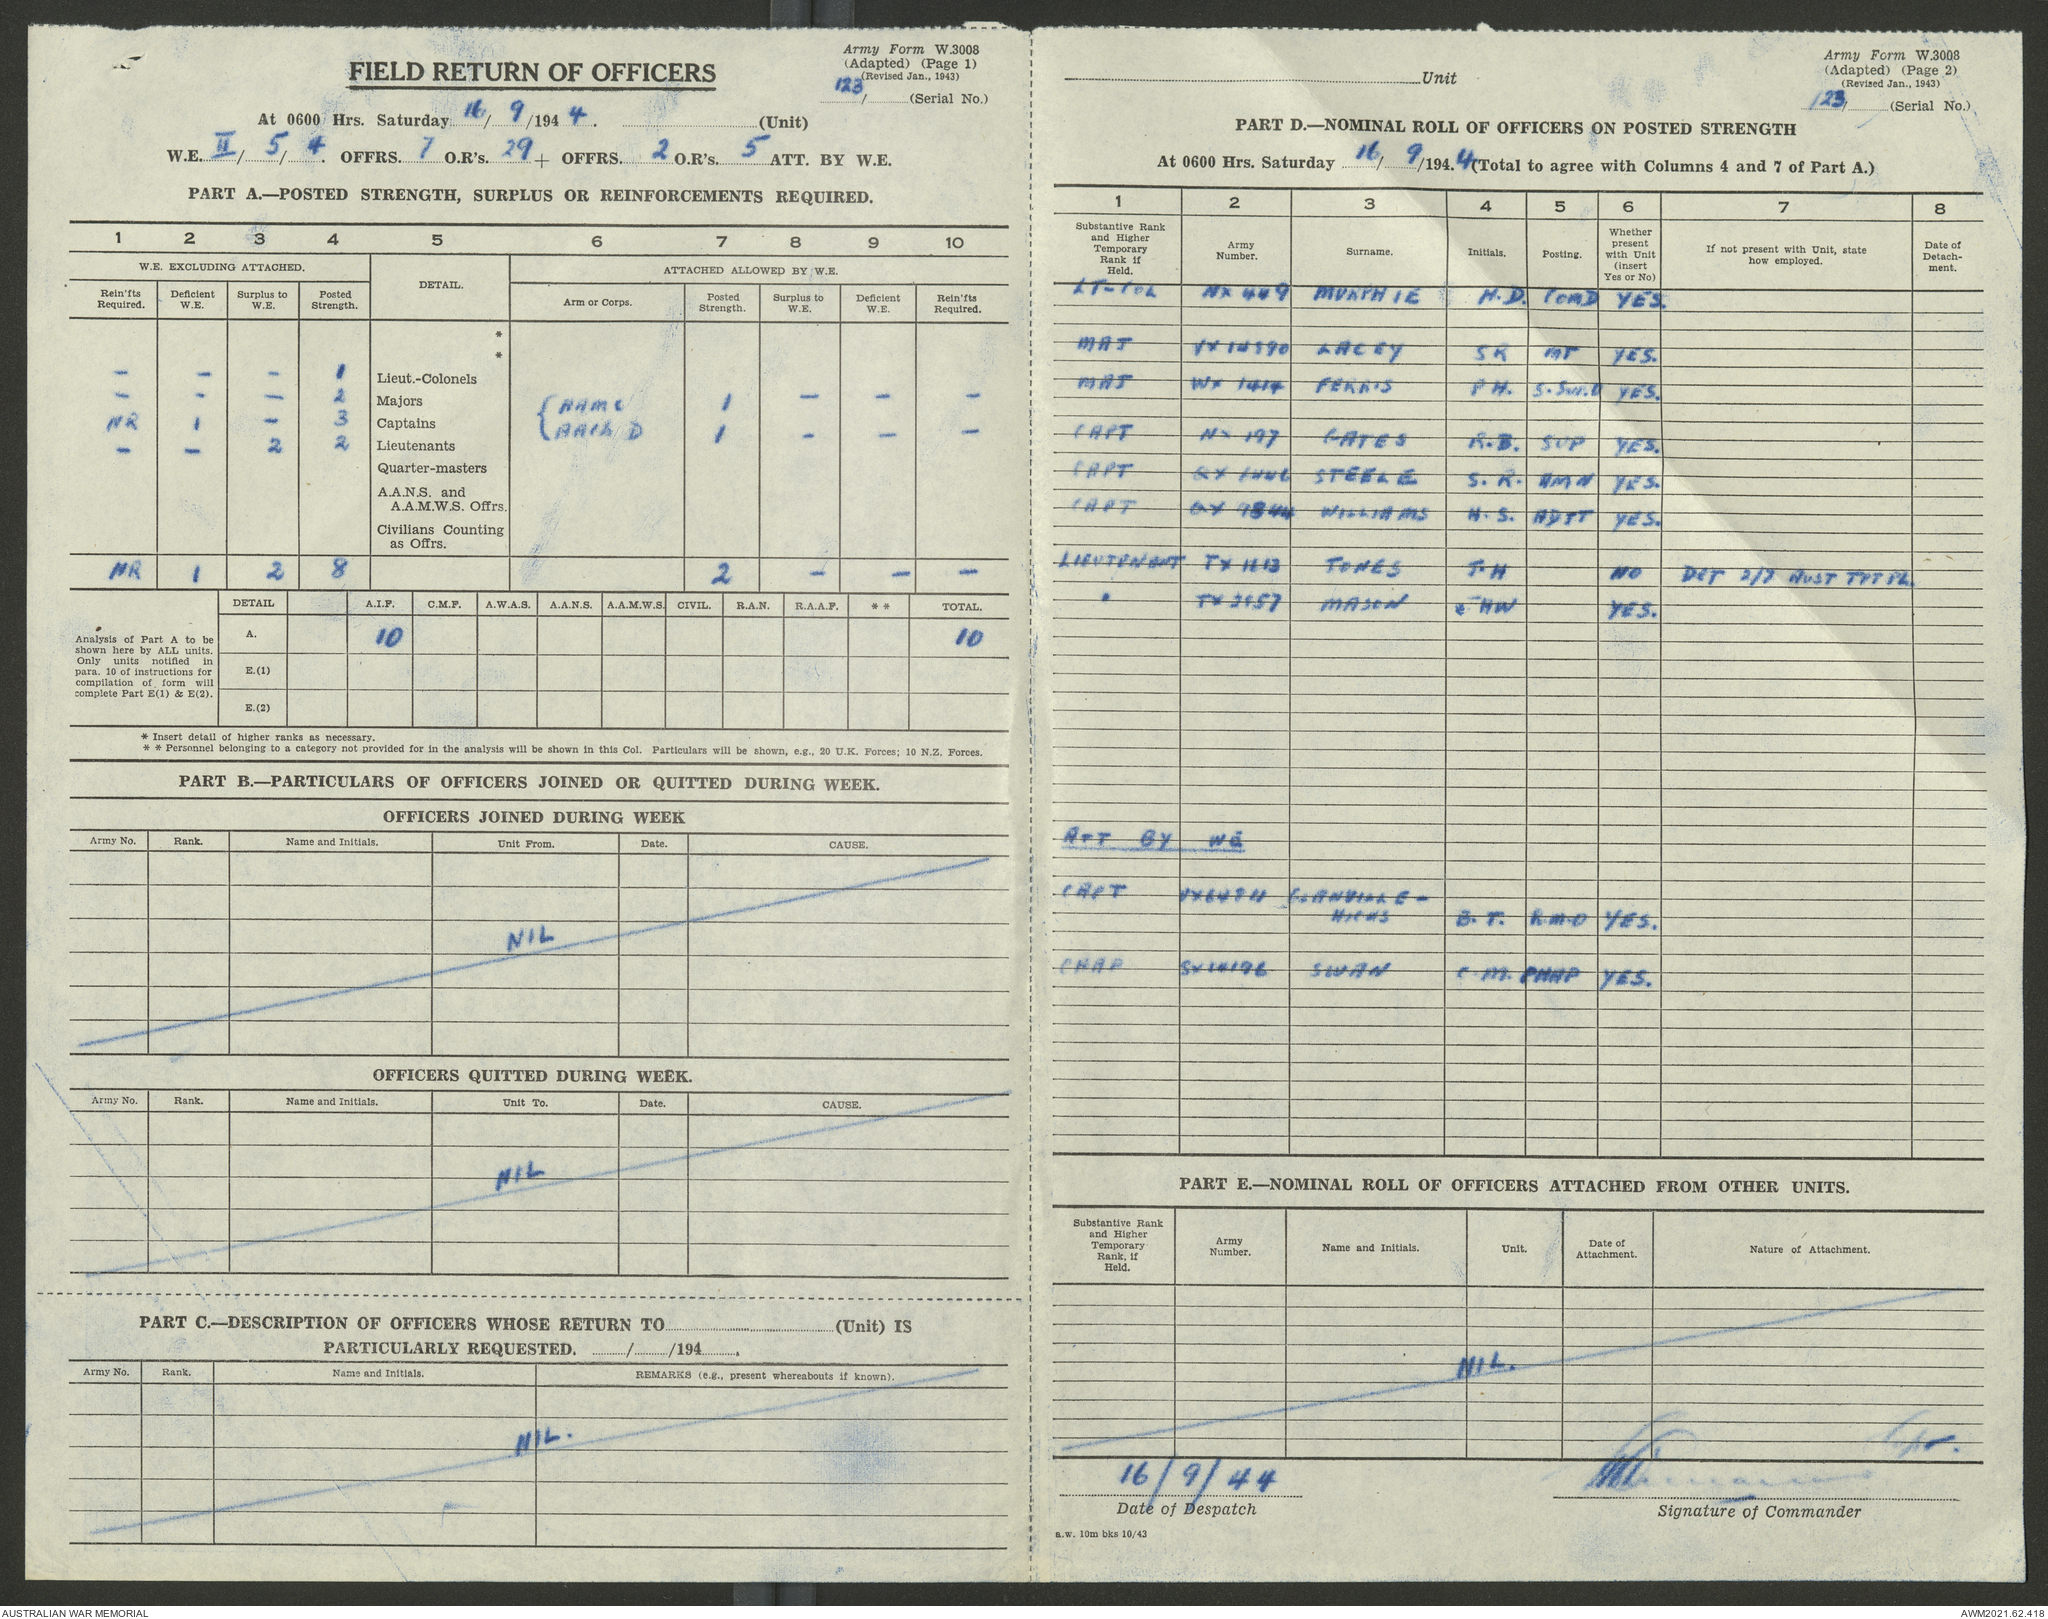 Army Form W.3008
(Adapted) (Page 1)
(Revised Jan., 1943)
123/ (Serial No.)
FIELD RETURN OF OFFICERS
At 0600 Hrs. Saturday 16/9/1944. (Unit)
W.E. II/5/4. OFFRS. 7 O.R's. 29 + OFFRS. 2 O.R's. 5 ATT. BY W.E.
PART A.—POSTED STRENGTH, SURPLUS OR REINFORCEMENTS REQUIRED.
1 2 3 4 5 6 7 8 9 10
W.E. EXCLUDING ATTACHED. DETAIL. ATTACHED ALLOWED BY W.E.
Rein'fts Required. Deficient W.E. Surplus to W.E. Posted Strength. Arm or Corps. Posted Strength. Surplus to W.E. Deficient W.E. Rein'fts Required.
*
*
– – – 1 Lieut.-Colonels
– – – 2 Majors AAMC 1 – – –
NR 1 – 3 Captains
– – 2 2 Lieutenants 1 – – –
Quarter-masters
A.A.N.S. and
A.A.M.W.S. Offrs.
Civilians Counting
as Offrs.
NR 1 2 8 2 – – –
DETAIL A.I.F. C.M.F. A.W.A.S. A.A.N.S. A.A.M.W.S. CIVIL. R.A.N. R.A.A.F. * * TOTAL.
Analysis of Part A to be shown here by ALL units. Only units notified in para. 10 of instructions for compilation of form will complete Part E(1) & E(2).
A. 10 10
E.(1)
E.(2)
* Insert detail of higher ranks as necessary.
* * Personnel belonging to a category not provided for in the analysis will be shown in this Col. Particulars will be shown, e.g., 20 U.K. Forces; 10 N.Z. Forces.
PART B.—PARTICULARS OF OFFICERS JOINED OR QUITTED DURING WEEK.
OFFICERS JOINED DURING WEEK
Army No. Rank. Name and Initials. Unit From. Date. CAUSE.
NIL
OFFICERS QUITTED DURING WEEK.
Army No. Rank. Name and Initials. Unit To. Date. CAUSE.
NIL
PART C.—DESCRIPTION OF OFFICERS WHOSE RETURN TO (Unit) IS
PARTICULARLY REQUESTED. / /194 .
Army No. Rank. Name and Initials. REMARKS (e.g., present whereabouts if known).
NIL.
Unit
Army Form W.3008
(Adapted) (Page 2)
(Revised Jan., 1943)
123/ (Serial No.)
PART D.—NOMINAL ROLL OF OFFICERS ON POSTED STRENGTH
At 0600 Hrs. Saturday 16/9/194.4 (Total to agree with Columns 4 and 7 of Part A.)
1 2 3 4 5 6 7 8
Substantive Rank and Higher Temporary Rank if Held. Army Number. Surname. Initials. Posting. Whether present with Unit (insert Yes or No) If not present with Unit, state how employed. Date of Detach- ment.
LT-COL NX 449 MURPHIE H.D. COMD YES.
MAJ VX 14590 LACEY SR MT YES.
MAJ WX 1414 FERRIS P H. YES.
CAPT NX 197 GATES R.B. SUP YES.
CAPT QX 1446 STEELE S. R. AMN YES.
CAPT QX 9844 WILLIAMS H. S. ADJT YES.
LIEUTENANT TX 1113 JONES J.H NO DET 2/7 AUST TPT PL.
" TX 2957 MASON HW YES.
ATT BY WE
CAPT GLANVILLE-
HICKS B. T. R.M.O YES.
CHAP SX14196 SWAN C.M. CHAP YES.
PART E.—NOMINAL ROLL OF OFFICERS ATTACHED FROM OTHER UNITS.
Substantive Rank and Higher Temporary Rank, if Held. Army Number. Name and Initials. Unit. Date of Attachment. Nature of Attachment.
NIL.
16/9/44
Date of Despatch
Signature of Commander
a.w. 10m bks 10/43
AUSTRALIAN WAR MEMORIAL
AWM2021.62.418